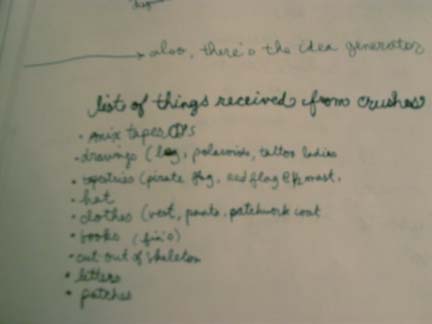 → also, there's the idea generator
list of things received from crushes
• mix tapes
• drawings (leg, polaroids, tattoo ladies
• tapestries (pirate flag, red flag @ mast.
• hat
• clothes (vest, pants, patchwork coat
• books
• cut out of skeleton
• letters
• patches